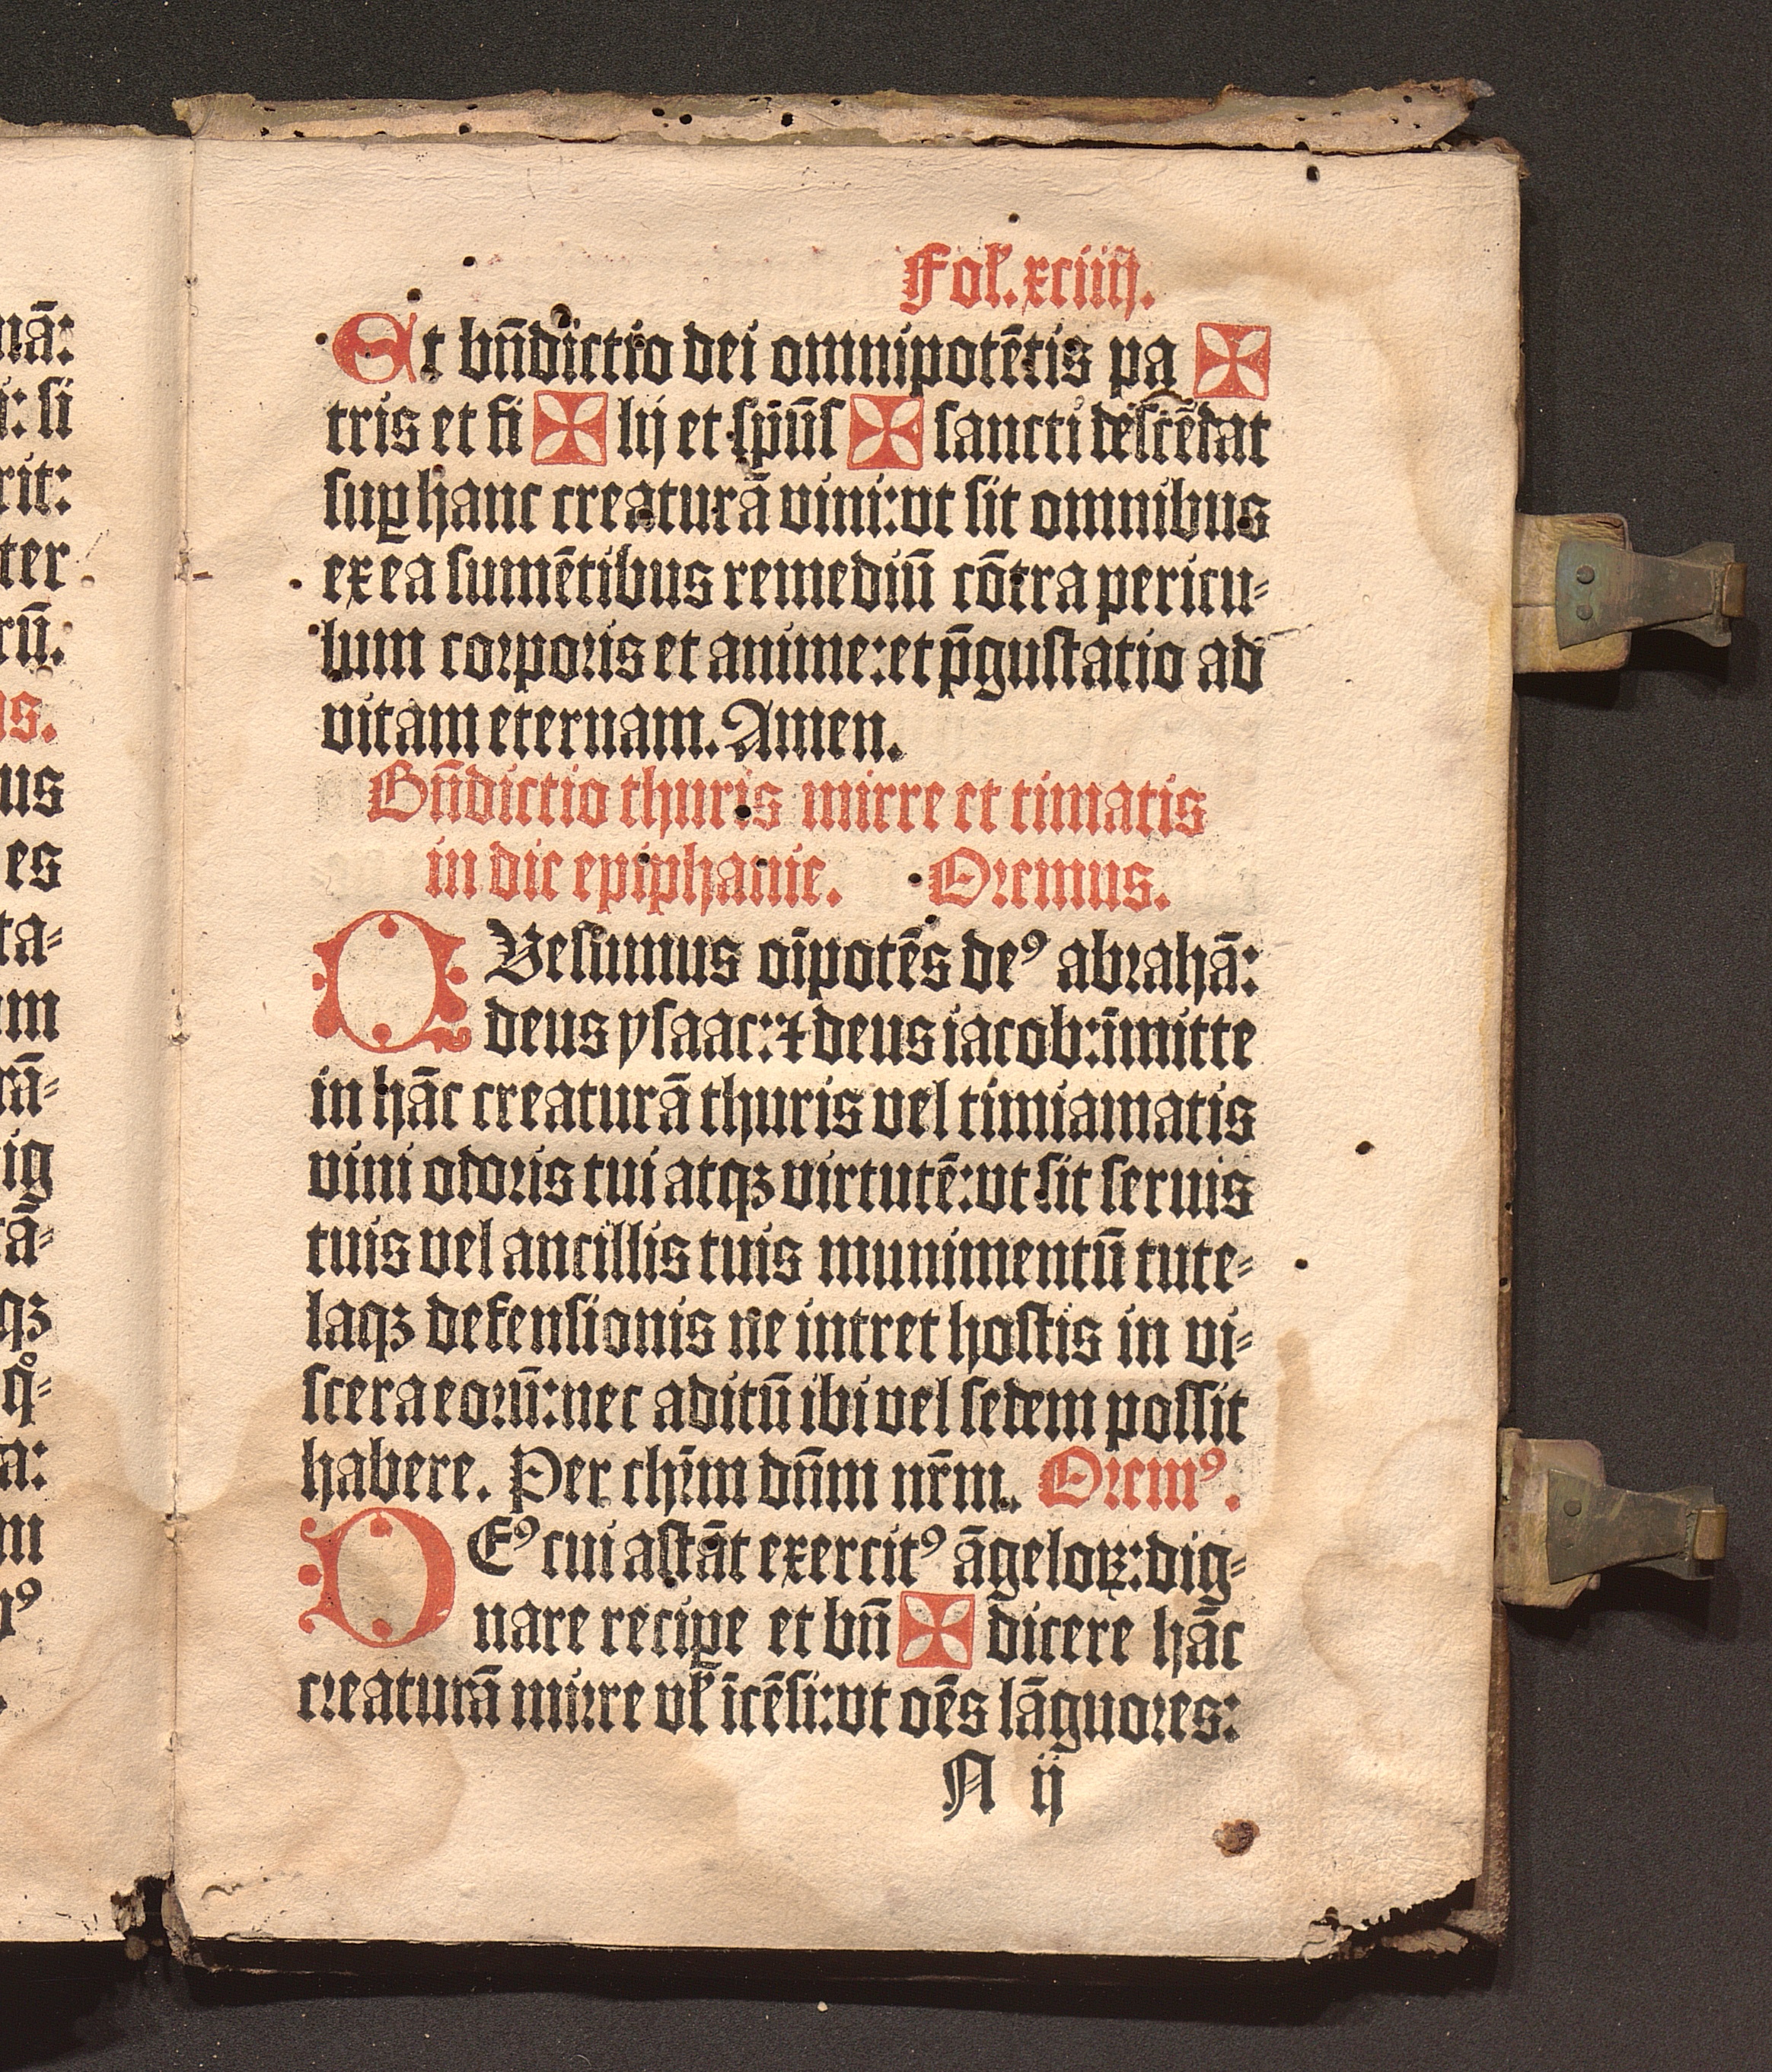 nā:
i: si
rit:
ter
rū.
us.
us
es
ta⸗
um
rā⸗
ig
tā⸗
qꝫ
qͦ⸗
a:
m
ꝰ
Fol. xciiij.
Et bn̄dictio dei omnipotētis pa ✠
tris et fi ✠ lij et spūs ✠ sancti descēdat
suꝑ hanc creaturā vini: vt sit omnibus
ex ea sumētibus remediū cōtra pericu⸗
lum corporis et anime: et p̄gustatio ad
vitam eternam. Amen.
Bn̄dictio thuris mirre et timatis
in die epiphanie. Oremus.
QVesumus oīpotēs deꝰ abrahā:
deus ysaac: ⁊ deus iacob: īmitte
in hāc creaturā thuris vel timiamatis
vini odoris tui atqꝫ virtutē: vt sit seruis
tuis vel ancillis tuis munimentū tute⸗
laqꝫ defensionis ne intret hostis in vi⸗
scera eorū: nec aditū ibi vel sedem possit
habere. Per chr̄m dn̄m nr̄m. Oremꝰ.
DEꝰ cui astāt exercitꝰ āgeloꝝ: dig⸗
nare reciꝑe et bn̄ ✠ dicere hāc
creaturā mirre vl̄ īcēsi: vt oēs lāguores:
N ij